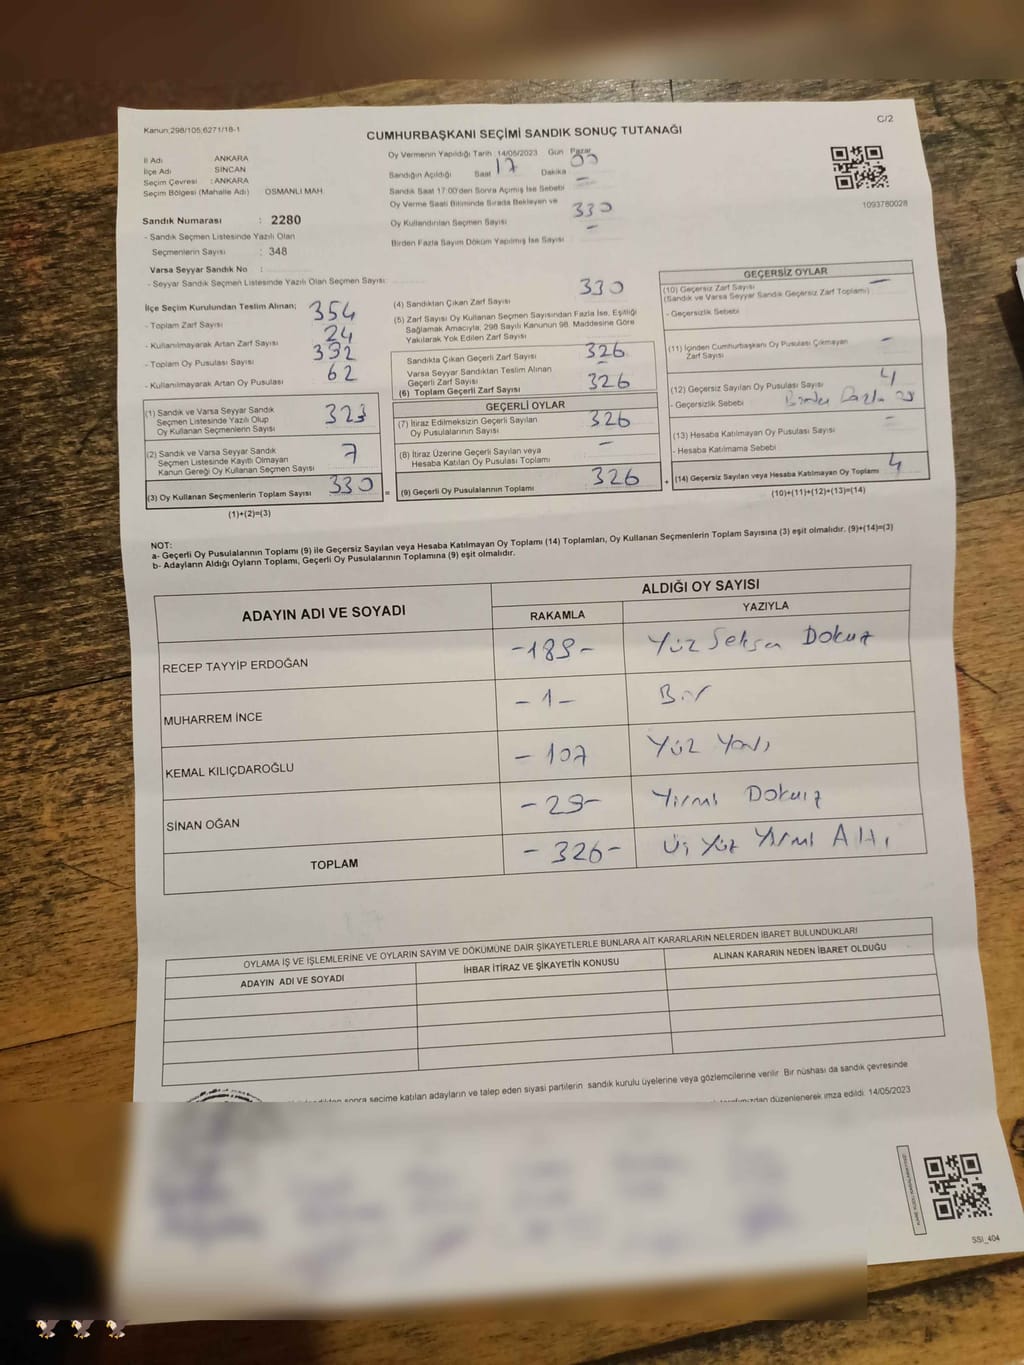 Kanun:298/105,6271/18-1
C/2
CUMHURBAŞKANI SEÇİMİ SANDIK SONUÇ TUTANAĞI
İl Adı ANKARA
İlçe Adı SİNCAN
Seçim Çevresi : ANKARA
Seçim Bölgesi (Mahalle Adı) OSMANLI MAH.
Sandık Numarası : 2280
- Sandık Seçmen Listesinde Yazılı Olan
Seçmenlerin Sayısı : 348
Varsa Seyyar Sandık No :
- Seyyar Sandık Seçmen Listesinde Yazılı Olan Seçmen Sayısı:
Oy Vermenin Yapıldığı Tarih :14/05/2023 Gün Pazar
Sandığın Açıldığı Saat 17 Dakika 00
Sandık Saat 17:00'den Sonra Açımış İse Sebebi –
Oy Verme Saati Bitiminde Sırada Bekleyen ve
Oy Kullandırılan Seçmen Sayısı 330
Birden Fazla Sayım Döküm Yapılmış İse Sayısı –
1093780028
İlçe Seçim Kurulundan Teslim Alınan;
- Toplam Zarf Sayısı 354
- Kullanılmayarak Artan Zarf Sayısı 24
- Toplam Oy Pusulası Sayısı 392
- Kullanılmayarak Artan Oy Pusulası 62
(1) Sandık ve Varsa Seyyar Sandık
Seçmen Listesinde Yazılı Olup
Oy Kullanan Seçmenlerin Sayısı 323
(2) Sandık ve Varsa Seyyar Sandık
Seçmen Listesinde Kayıtlı Olmayan
Kanun Gereği Oy Kullanan Seçmen Sayısı 7
(3) Oy Kullanan Seçmenlerin Toplam Sayısı 330
(1)+(2)=(3)
=
(4) Sandıktan Çıkan Zarf Sayısı 330
(5) Zarf Sayısı Oy Kullanan Seçmen Sayısından Fazla İse, Eşitliği
Sağlamak Amacıyla, 298 Sayılı Kanunun 98. Maddesine Göre
Yakılarak Yok Edilen Zarf Sayısı
Sandıkta Çıkan Geçerli Zarf Sayısı 326
Varsa Seyyar Sandıktan Teslim Alınan
Geçerli Zarf Sayısı –
(6) Toplam Geçerli Zarf Sayısı 326
GEÇERLİ OYLAR
(7) İtiraz Edilmeksizin Geçerli Sayılan
Oy Pusulalarının Sayısı 326
(8) İtiraz Üzerine Geçerli Sayılan veya
Hesaba Katılan Oy Pusulası Toplamı –
(9) Geçerli Oy Pusulalarının Toplamı 326
+
GEÇERSİZ OYLAR
(10) Geçersiz Zarf Sayısı –
(Sandık ve Varsa Seyyar Sandık Geçersiz Zarf Toplamı)
- Geçersizlik Sebebi
(11) İçinden Cumhurbaşkanı Oy Pusulası Çıkmayan
Zarf Sayısı –
(12) Geçersiz Sayılan Oy Pusulası Sayısı 4
- Geçersizlik Sebebi Birden Fazla
(13) Hesaba Katılmayan Oy Pusulası Sayısı –
- Hesaba Katılmama Sebebi
(14) Geçersiz Sayılan veya Hesaba Katılmayan Oy Toplamı 4
(10)+(11)+(12)+(13)=(14)
NOT:
a- Geçerli Oy Pusulalarının Toplamı (9) ile Geçersiz Sayılan veya Hesaba Katılmayan Oy Toplamı (14) Toplamları, Oy Kullanan Seçmenlerin Toplam Sayısına (3) eşit olmalıdır. (9)+(14)=(3)
b- Adayların Aldığı Oyların Toplamı, Geçerli Oy Pusulalarının Toplamına (9) eşit olmalıdır.
ADAYIN ADI VE SOYADI
ALDIĞI OY SAYISI
RAKAMLA YAZIYLA
RECEP TAYYİP ERDOĞAN -189- Yüz Seksen Dokuz
MUHARREM İNCE -1- Bir
KEMAL KILIÇDAROĞLU -107 Yüz Yedi
SİNAN OĞAN -29- Yirmi Dokuz
TOPLAM -326- Üç Yüz Yirmi Altı
OYLAMA İŞ VE İŞLEMLERİNE VE OYLARIN SAYIM VE DÖKÜMÜNE DAİR ŞİKAYETLERLE BUNLARA AİT KARARLARIN NELERDEN İBARET BULUNDUKLARI
ADAYIN ADI VE SOYADI İHBAR İTİRAZ VE ŞİKAYETİN KONUSU ALINAN KARARIN NEDEN İBARET OLDUĞU
sonra seçime katılan adayların ve talep eden siyasi partilerin sandık kurulu üyelerine veya gözlemcilerine verilir. Bir nüshası da sandık çevresinde
düzenlenerek imza edildi. 14/05/2023
SSI_404